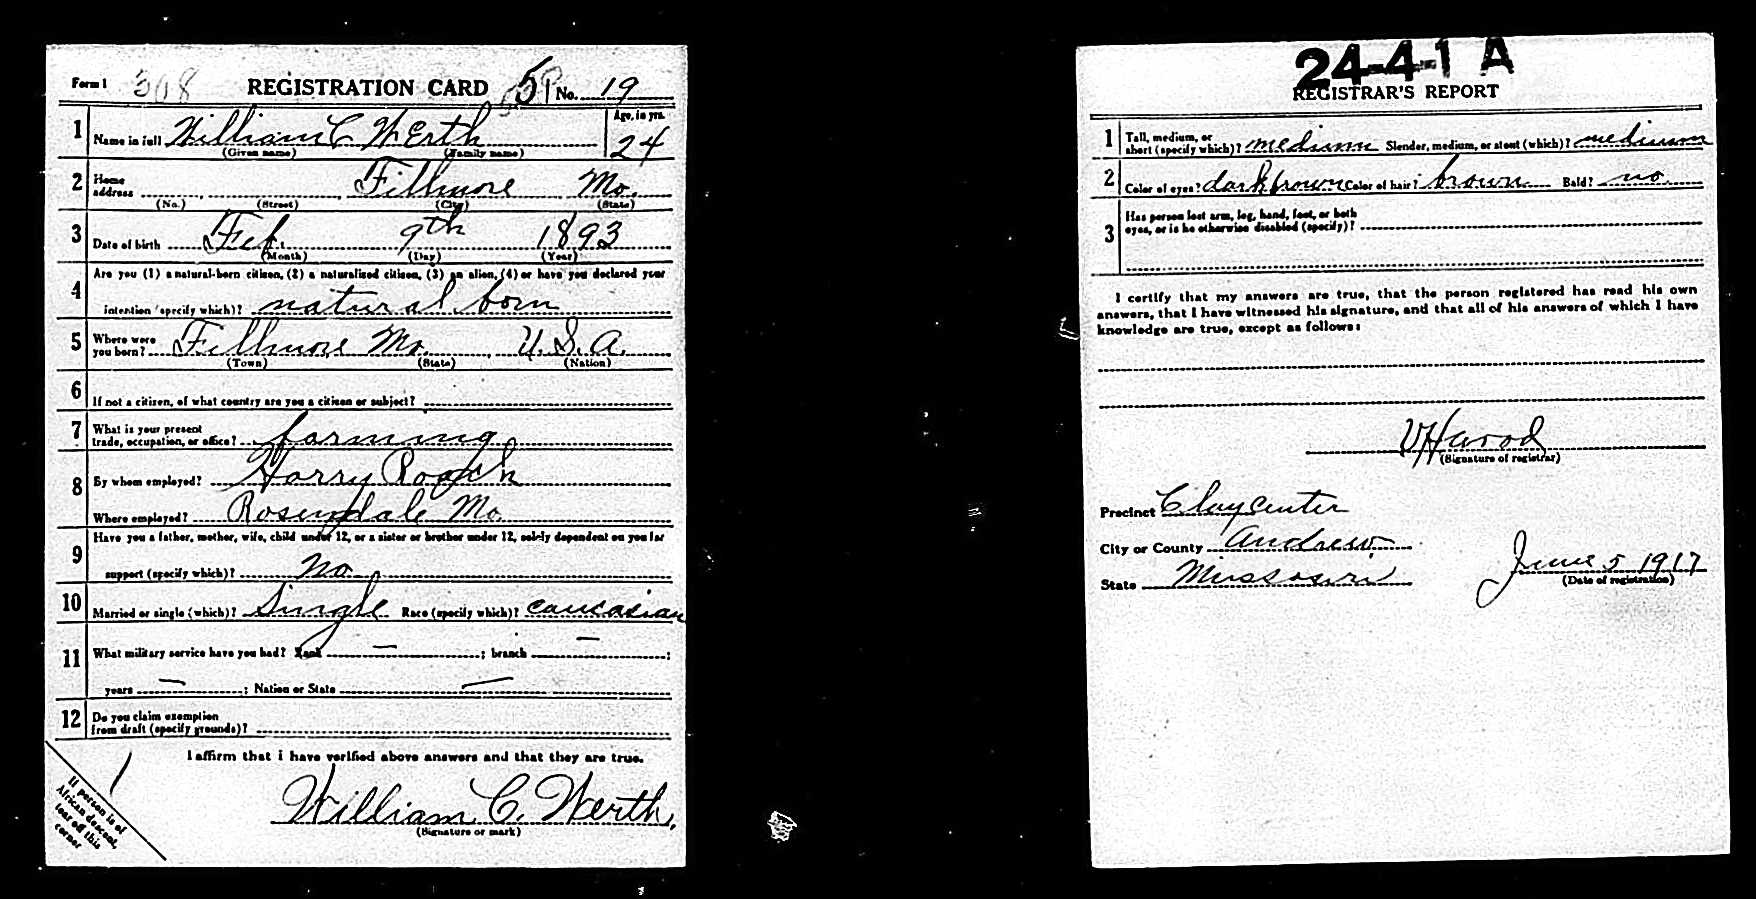 Form 1 308 REGISTRATION CARD No. 19
1 Name in full William C Werth Age, in yrs. 24
(Given name) (Family name)
2 Home address Fillmore Mo.
(No.) (Street) (City) (State)
3 Date of birth Feb. 9th 1893
(Month) (Day) (Year)
4 Are you (1) a natural-born citizen, (2) a naturalized citizen, (3) an alien, (4) or have you declared your
intention (specify which)? natural born
5 Where were you born? Fillmore Mo. U.S.A.
(Town) (State) (Nation)
6 If not a citizen, of what country are you a citizen or subject?
7 What is your present trade, occupation, or office? farming
8 By whom employed? Harry Roach
Where employed? Rosendale Mo.
9 Have you a father, mother, wife, child under 12, or a sister or brother under 12, solely dependent on you for
support (specify which)? No
10 Married or single (which)? Single Race (specify which)? caucasian
11 What military service have you had? Rank — ; branch — ;
years — ; Nation or State —
12 Do you claim exemption
from draft (specify grounds)?
I affirm that I have verified above answers and that they are true.
William C. Werth.
(Signature or mark)
If person is of
African descent,
tear off this
corner
24-4-1 A
REGISTRAR'S REPORT
1 Tall, medium, or
short (specify which)? medium Slender, medium, or stout (which)? medium
2 Color of eyes? dark brown Color of hair? brown Bald? no
3 Has person lost arm, leg, hand, foot, or both
eyes, or is he otherwise disabled (specify)?
I certify that my answers are true, that the person registered has read his own
answers, that I have witnessed his signature, and that all of his answers of which I have
knowledge are true, except as follows:
(Signature of registrar)
Precinct Clay center
City or County Andrew
State Missouri
June 5 1917
(Date of registration)